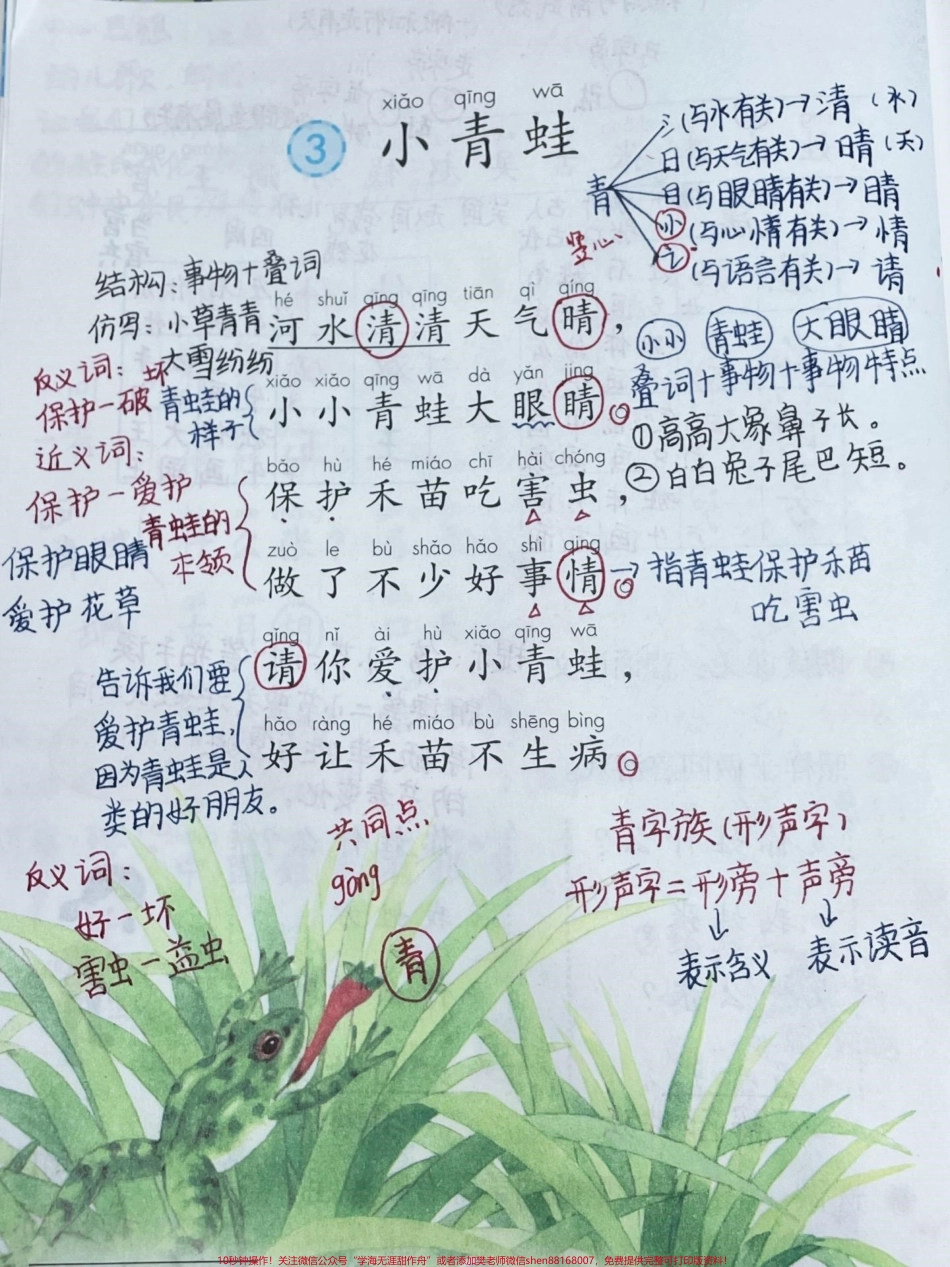 xiǎo qīng wā
3 小青蛙
青
氵(与水有关)→清(水)
日(与天气有关)→晴(天)
目(与眼睛有关)→睛
忄(与心情有关)→情
讠(与语言有关)→请
竖心
结构:事物+叠词
仿写:小草青青
大雪纷纷
hé shuǐ qīng qīng tiān qì qíng
河水清清天气晴,
小小 青蛙 大眼睛
叠词+事物+事物特点
①高高大象鼻子长。
②白白兔子尾巴短。
反义词:坏
保护—破
近义词:
保护—爱护
保护眼睛
爱护花草
青蛙的
样子
xiǎo xiǎo qīng wā dà yǎn jing
小小青蛙大眼睛。
青蛙的
本领
bǎo hù hé miáo chī hài chóng
保护禾苗吃害虫,
zuò le bù shǎo hǎo shì qing
做了不少好事情。
→指青蛙保护禾苗
吃害虫
qǐng nǐ ài hù xiǎo qīng wā
请你爱护小青蛙,
hǎo ràng hé miáo bù shēng bìng
好让禾苗不生病。
告诉我们要
爱护青蛙,
因为青蛙是人
类的好朋友。
反义词:
好—坏
害虫—益虫
共同点
gòng
青
青字族(形声字)
形声字=形旁+声旁
↓ ↓
表示含义 表示读音
10秒钟操作!关注微信公众号“学海无涯甜作舟”或者添加樊老师微信shen88168007,免费提供完整可打印版资料!